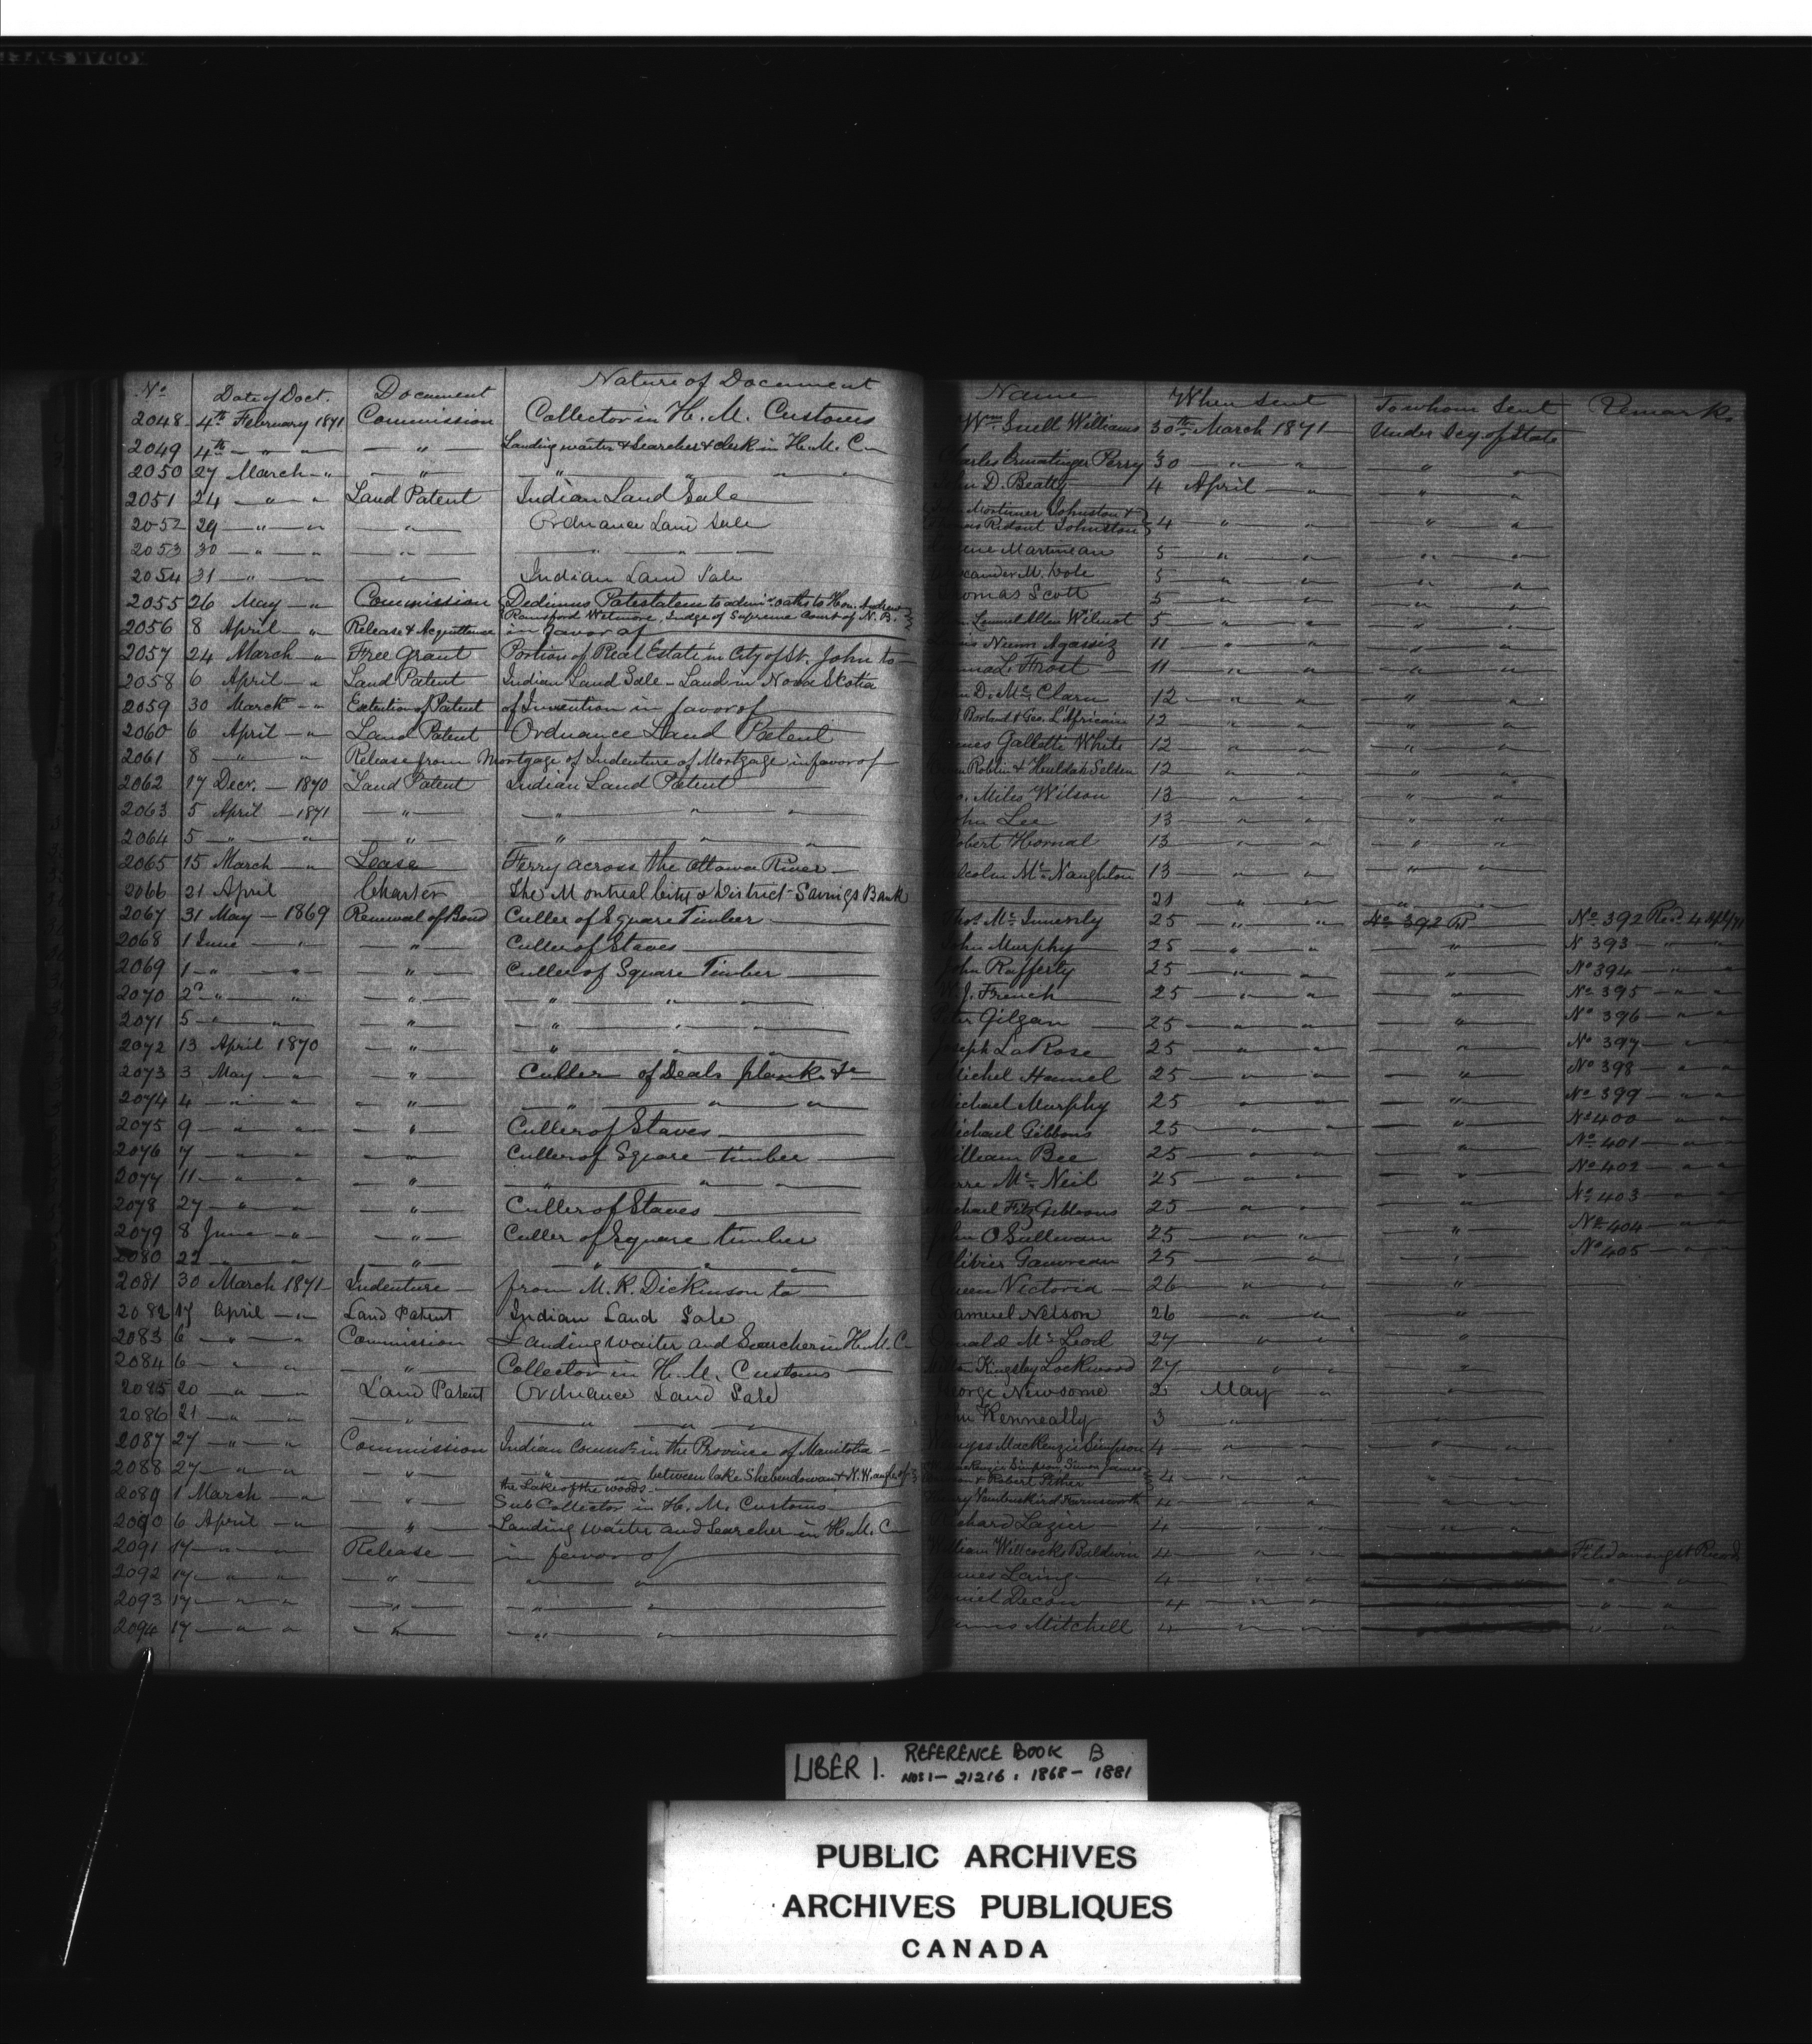 No Date of Doct. Document Nature of Document Name When Sent To whom Sent Remark
2048 4th February 1871 Commission Collector in H. M. Customs Wm Snell Williams 30th March 1871 Under Scy. of State
2049 4th — " — " — " — Landing waiter & Searcher & clerk in H. M. C— Charles Ermatinger Perry 30 — " — " — " — "
2050 27 March — " — " — — " — " — " — " John D. Beatty 4 April — " — " — "
2051 24 — " — " Land Patent Indian Land Sale Mortimer Johnston &
Ridout Johnston } 4 — " — " — " — "
2052 29 — " — " — " — Ordnance Land Sale Martineau 5 — " — " — " — "
2053 30 — " — " — " — — " — " — " — M. Wole 5 — " — " — " — "
2054 31 — " — " — " — Indian Land Sale Thomas Scott 5 — " — " — " — "
2055 26 May — " Commission { Dedimus Potestatem to admin. oaths to Hon. Andrew
Rainsford Wetmore, Judge of Supreme Court of N. B. } Lemuel Allen Wilmot 5 — " — " — " — "
2056 8 April — " Release & Acquittance in favor of Nunn Agassiz 11 — " — " — " — "
2057 24 March — " Free Grant Portion of Real Estate in City of St. John to — L. Frost 11 — " — " — " — "
2058 6 April — " Land Patent Indian Land Sale – Land in Nova Skotia John D. Mc Clarn 12 — " — " — " — "
2059 30 March — " Extention of Patent of Invention in favor of Borland & Geo. L'Africain 12 — " — " — " — "
2060 6 April — " Land Patent Ordnance Land Patent James Galletti White 12 — " — " — " — "
2061 8 — " — " Release from Mortgage of Indenture of Mortgage in favor of Roblin & Huldah Selden 12 — " — " — " — "
2062 17 Decr. — 1870 Land Patent Indian Land Patent Miles Wilson 13 — " — " — " — "
2063 5 April — 1871 — " — — " — " — " John Lee 13 — " — " — " — "
2064 5 — " — " — " — — " — " — " Robert Homal 13 — " — " — " — "
2065 15 March — " Lease Ferry across the Ottawa River Malcolm Mc Naughton 13 — " — " — " — "
2066 21 April Charter The Montreal City & District Savings Bank 21 — " — " — " — "
2067 31 May — 1869 Renewal of Bond Culler of Square Timber Thos. Mc Innenly 25 — " — " No 392 R No 392 Rec. 4 Apl/71
2068 1 June — " — " — Culler of Staves John Murphy 25 — " — " — " — N 393 — " — "
2069 1 — " — " — " — Culler of Square Timber John Rafferty 25 — " — " — " — No 394 — " — "
2070 2 — " — " — " — — " — " — " — J. French 25 — " — " — " — No 395 — " — "
2071 5 — " — " — " — — " — " — " — Peter Gilgan 25 — " — " — " — No 396 — " — "
2072 13 April 1870 — " — — " — " — " — Joseph LaRose 25 — " — " — " — No 397 — " — "
2073 3 May — " — " — Culler of Deals plank &c Michel Hamel 25 — " — " — " — No 398 — " — "
2074 4 — " — " — " — — " — " — " Michael Murphy 25 — " — " — " — No 399 — " — "
2075 9 — " — " — " — Culler of Staves Michael Gibbons 25 — " — " — " — No 400 — " — "
2076 7 — " — " — " — Culler of Square timber William Bee 25 — " — " — " — No 401 — " — "
2077 11 — " — " — " — — " — " — " — Pierre Mc Neil 25 — " — " — " — No 402 — " — "
2078 27 — " — " — " — Culler of Staves Michael Fitz Gibbons 25 — " — " — " — No 403 — " — "
2079 8 June — " — " — Culler of Square timber John O Sullivan 25 — " — " — " — No 404 — " — "
2080 22 — " — " — — " — " — " — Olivier Gauvreau 25 — " — " — " — No 405 — " — "
2081 30 March 1871 — Indenture — from M. K. Dickinson to — Queen Victoria — 26 — " — " — " —
2082 17 April — " Land Patent Indian Land Sale Samuel Nelson 26 — " — " — " —
2083 6 — " — " Commission Landing waiter and Searcher in H. M. C— Donald Mc Leod 27 — " — " — " —
2084 6 — " — " — " — Collector in H. M. Customs Kingsley Lockwood 27 — " — " — " —
2085 20 — " — " Land Patent Ordnance Land Sale George Newsome 2 May — " — " —
2086 21 — " — " — " — — " — " — " — John Kenneally 3 — " — " — " —
2087 27 — " — " Commission Indian Commr. in the Province of Manitoba — Wemyss MacKenzie Simpson 4 — " — " — " —
2088 27 — " — " — " — — " — " — between lake Shebandowan & N. W. angle of
the Lake of the woods — MacKenzie Simpson, Simon James
Dawson & Robert Pither } 4 — " — " — " —
2089 1 March — " — " — Sub Collector in H. M. Customs Henry Vanbuskird Farnsworth 4 — " — " — " —
2090 6 April — " — " — Landing waiter and Searcher in H. M. C— Richard Lazier 4 — " — " — " —
2091 17 — " — " Release — in favor of William Willcocks Baldwin 4 — " — " Filed amongst Records
2092 17 — " — " — " — — " — " James Laing 4 — " — " — " — "
2093 17 — " — " — " — — " — " Daniel Decon 4 — " — " — " — "
2094 17 — " — " — " — — " — " James Mitchell 4 — " — " — " — "
LIBER 1. REFERENCE BOOK B
NOS 1 – 21216 . 1868 – 1881
PUBLIC ARCHIVES
ARCHIVES PUBLIQUES
CANADA